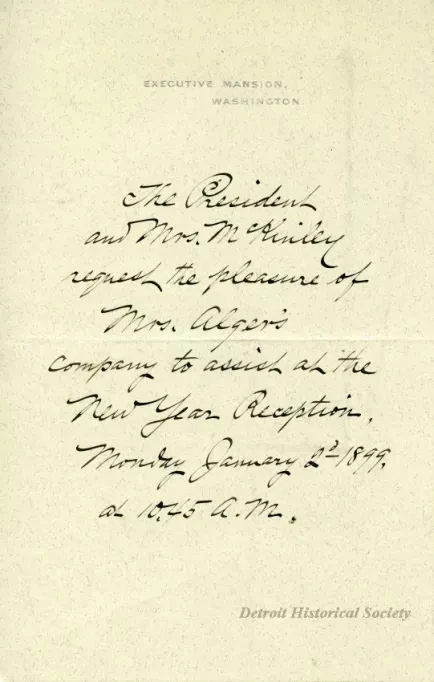 EXECUTIVE MANSION,
WASHINGTON.
The President
and Mrs. McKinley
request the pleasure of
Mrs. Alger's
company to assist at the
New Year Reception,
Monday January 2d 1899,
at 10.45 A.M.
Detroit Historical Society